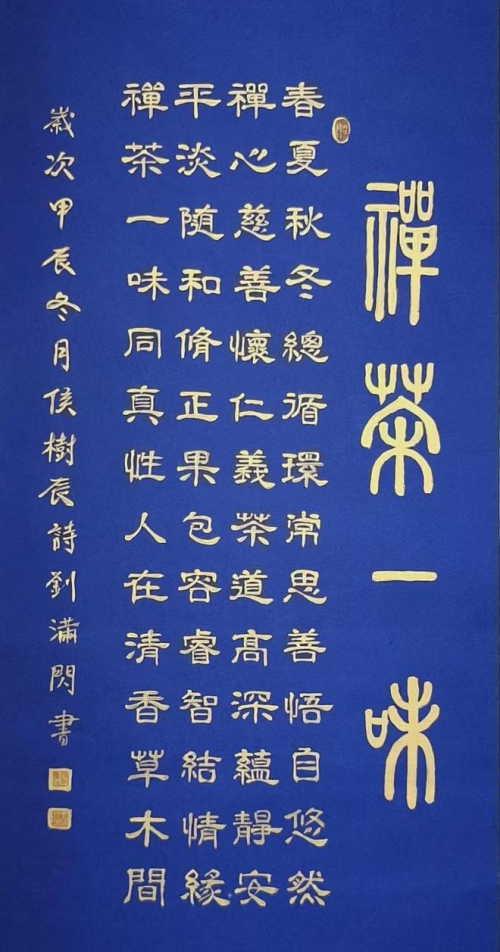 禪茶一味
春夏秋冬總循環常思善悟自悠然
禪心慈善懷仁義茶道高深蘊靜安
平淡随和脩正果包容睿智結情緣
禪茶一味同真性人在清香草木間
歲次甲辰冬月侯樹辰詩劉滿閃書